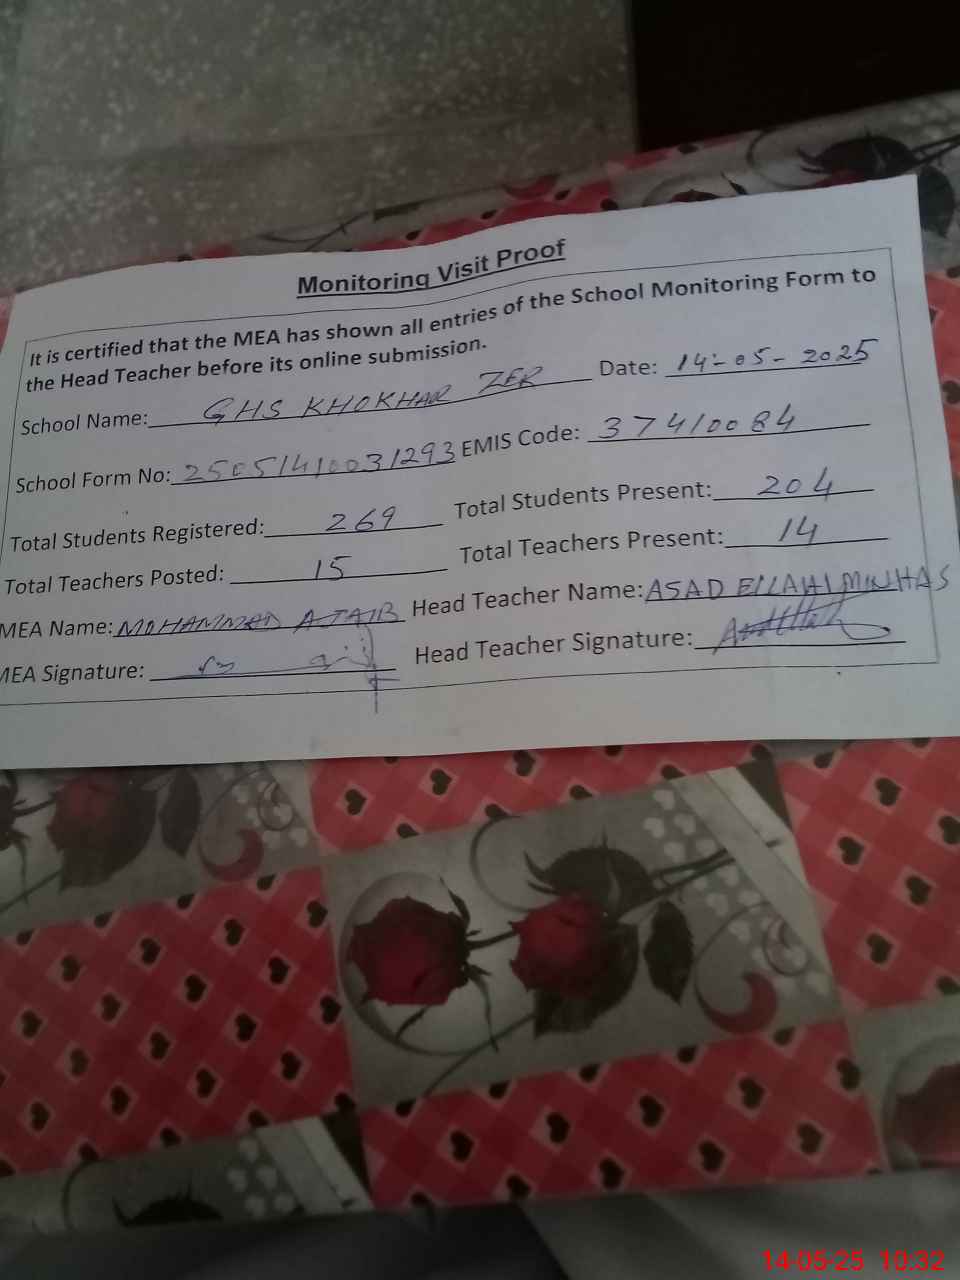 Monitoring Visit Proof
It is certified that the MEA has shown all entries of the School Monitoring Form to
the Head Teacher before its online submission.
School Name: GHS KHOKHAR ZER Date: 14-05-2025
School Form No: 25051410031293 EMIS Code: 37410084
Total Students Registered: 269 Total Students Present: 204
Total Teachers Posted: 15 Total Teachers Present: 14
MEA Name: MOHAMMAD Head Teacher Name: ASAD ELLAHI MINHAS
MEA Signature: Head Teacher Signature:
14-05-25 10:32